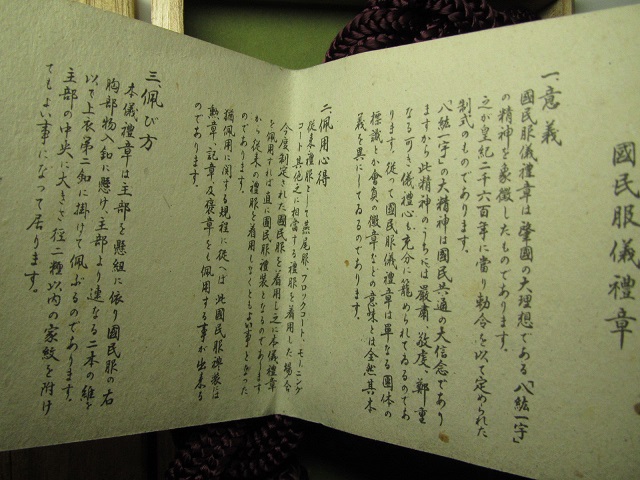 國民服儀禮章
一、意義
國民服儀禮章は肇國の大理想である「八紘一宇」
の精神を象徴したものであります。
之が皇紀二千六百年に當り勅令を以て定められた
制式のものであります。
「八紘一宇」の大精神は國民共通の大信念であり
ますから此精神のうちには嚴肅、敬虔、鄭重
なる可き儀禮心も充分に籠められてゐるのであ
ります。從つて國民服儀禮章は單なる團体の
標識とか會員の徽章などの意味とは全然其本
義を異にしてゐるのであります。
二、佩用心得
從来禮服として燕尾服、フロックコート、モーニング
コート其他之に相當する禮服を着用した場合
今度制定された國民服を着用し之に本儀禮章
を佩用すれば直に國民服禮装となるのであります
から從来の禮服を着用しなくともよい事となった
のであります。
猶佩用に関する規程に從へば此國民服禮装には
勲章、記章、及褒章をも佩用する事が出来る
のであります。
三、佩び方
本儀禮章は主部を懸紐に依り國民服の右
胸部物入釦に懸け、主部より連なる二本の紐を
以て上衣第二釦に掛けて佩ぶるのであります。
主部の中央に大きさ径二糎以内の家紋を附け
てもよい事になって居ります。